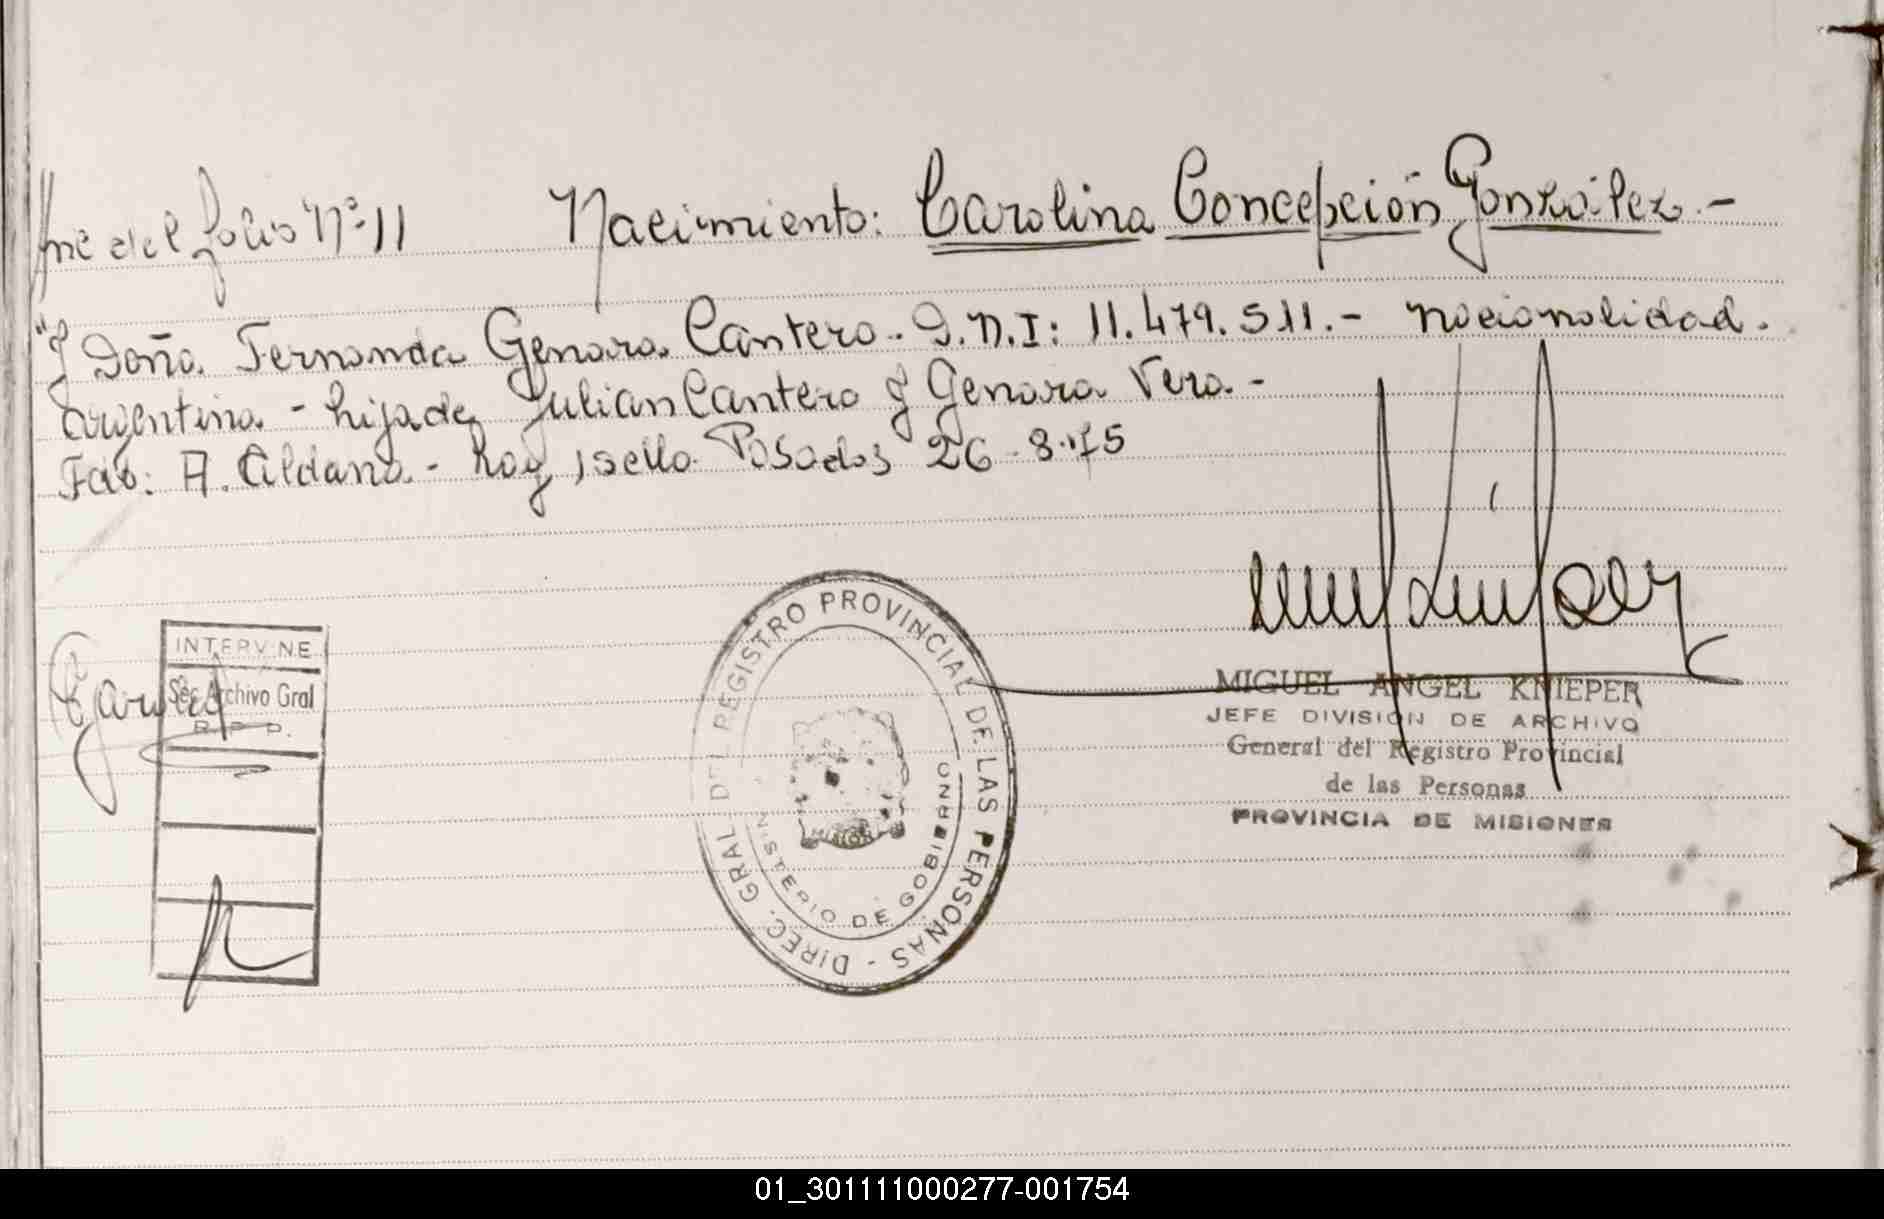 del folio Nº 11 Nacimiento: Carolina Concepción González.-
"y Doña. Fernanda Genara. Cantero. D.N.I: 11.479.511.- nacionalidad.
argentina. - hija de Julian Cantero y Genara Vera.-
Fdo: A. Aldana. - hay, sello. Posadas 26-8-75
INTERVINE
Sec Archivo Gral
R.P.P.
DIREC. GRAL. DEL REGISTRO PROVINCIAL DE LAS PERSONAS -
MINISTERIO DE GOBIERNO
MIGUEL ANGEL KNIEPER
JEFE DIVISION DE ARCHIVO
General del Registro Provincial
de las Personas
PROVINCIA DE MISIONES
01_301111000277-001754